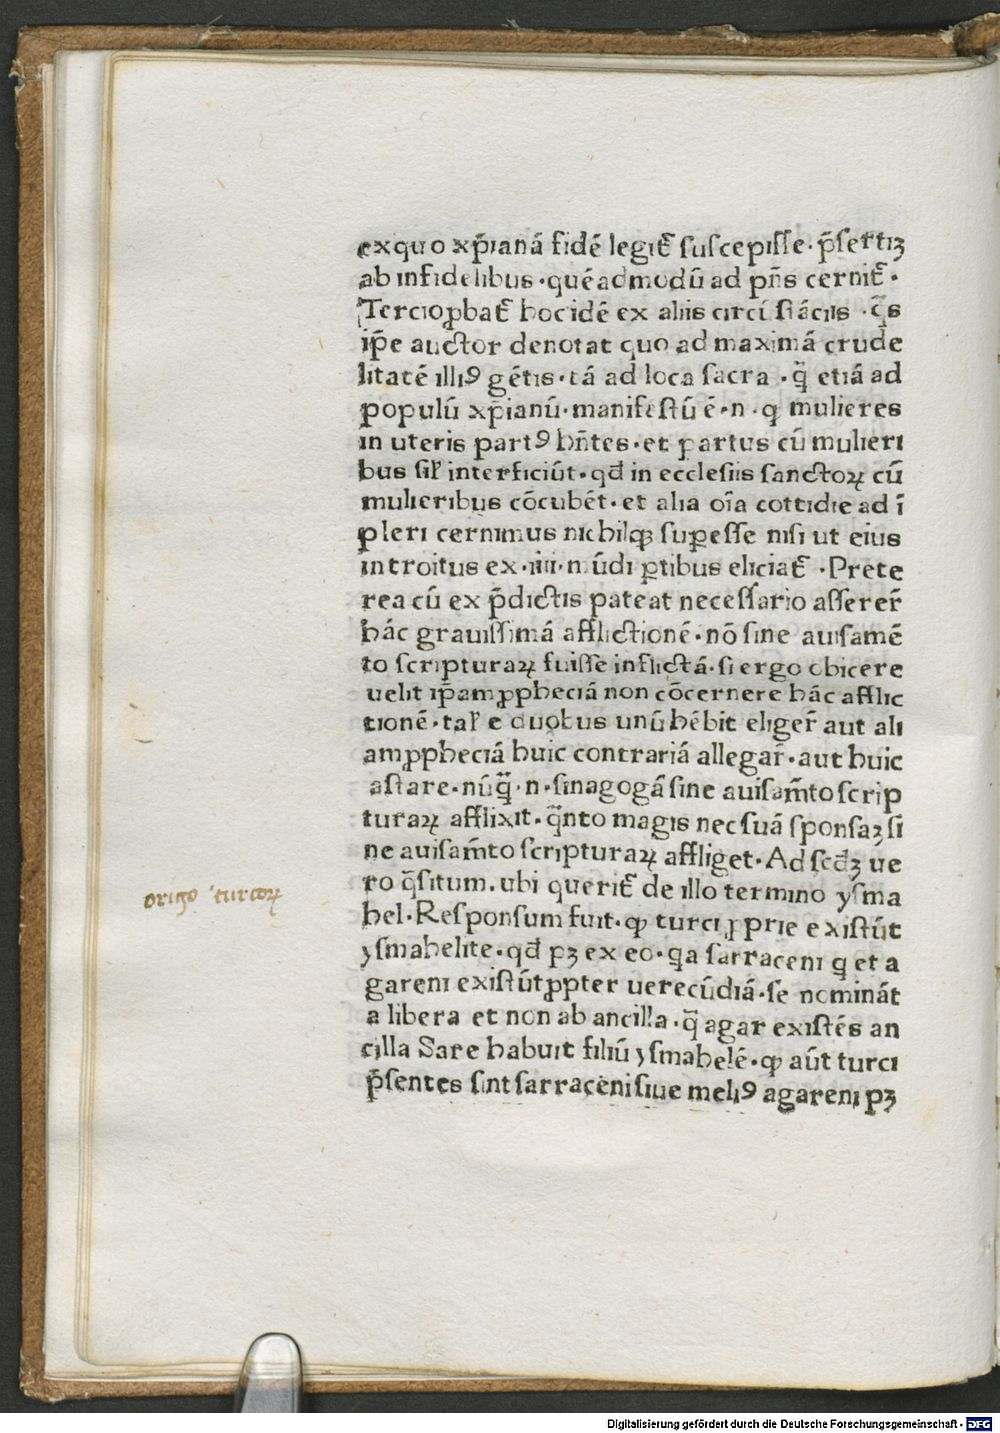 exquo xp̄ianā fidē legit᷑ suscepisse· p̄sertīꝫ
ab infidelibus · quēadmodū ad pn̄s cernit᷑ ·
Tercio ꝓbat᷑ hoc idē ex aliis circūstāciis · q̄s
ip̄e auctor denotat quo ad maximā crude
litatē illiꝰ gētis · tā ad loca sacra · q̄ etiā ad
populū xp̄ianū · manifestū ē · n · ꝙ mulieres
in uteris partꝰ hn̄tes · et partus cū mulieri
bus sil̄ interficiūt · qd̄ in ecclesiis sanctoꝝ cū
mulieribus cōcubēt · et alia oīa cottidie ad ī
pleri cernimus nichilqꝫ suꝑesse nisi ut eius
introitus ex · iiii · mūdi ꝑtibus eliciat᷑ · Prete
rea cū ex p̄dictis pateat necessario asserer̄
hāc grauissimā afflictionē · nō sine auisamē
to scripturaꝝ fuisse inflictā · si ergo obicere
uelit ip̄am ꝓpheciā non cōcernere hāc afflic
tionē · tal̄ e duobus unū hēbit eliger̄ aut ali
am ꝓpheciā huic contrariā allegar̄ · aut huic
astare · nūq̄ · n · sinagogā sine auisam̄to scrip
turaꝝ afflixit · q̄nto magis nec suā sponsaꝫ si
ne auisam̄to scripturaꝝ affliget · Ad scd̄ꝫ ue
ro q̄situm · ubi querit᷑ de illo termino ysma
hel · Responsum fuit · ꝙ turci ꝓprie existūt
ysmahelite · qd̄ pꝫ ex eo · qa sarraceni q̄ et a
gareni existūt ꝓpter uerecūdiā · se nomināt
a libera et non ab ancilla · q̄ agar existēs an
cilla Sare habuit filiū ysmahelē · ꝙ aūt turci
p̄sentes sint sarraceni siue meliꝰ agareni pꝫ
origo turcoꝝ
Digitalisierung gefördert durch die Deutsche Forschungsgemeinschaft - DFG